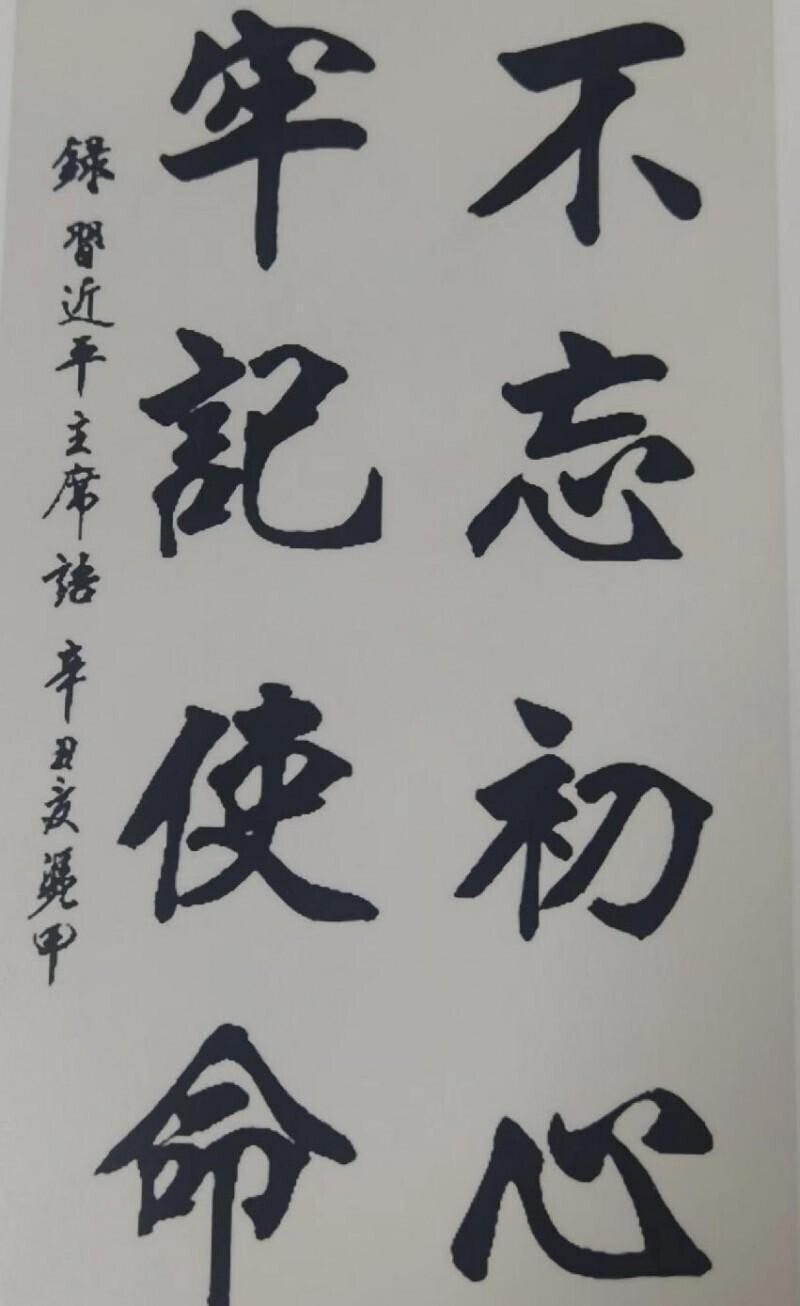 不忘初心
牢記使命
錄習近平主席語 辛丑夏 甲